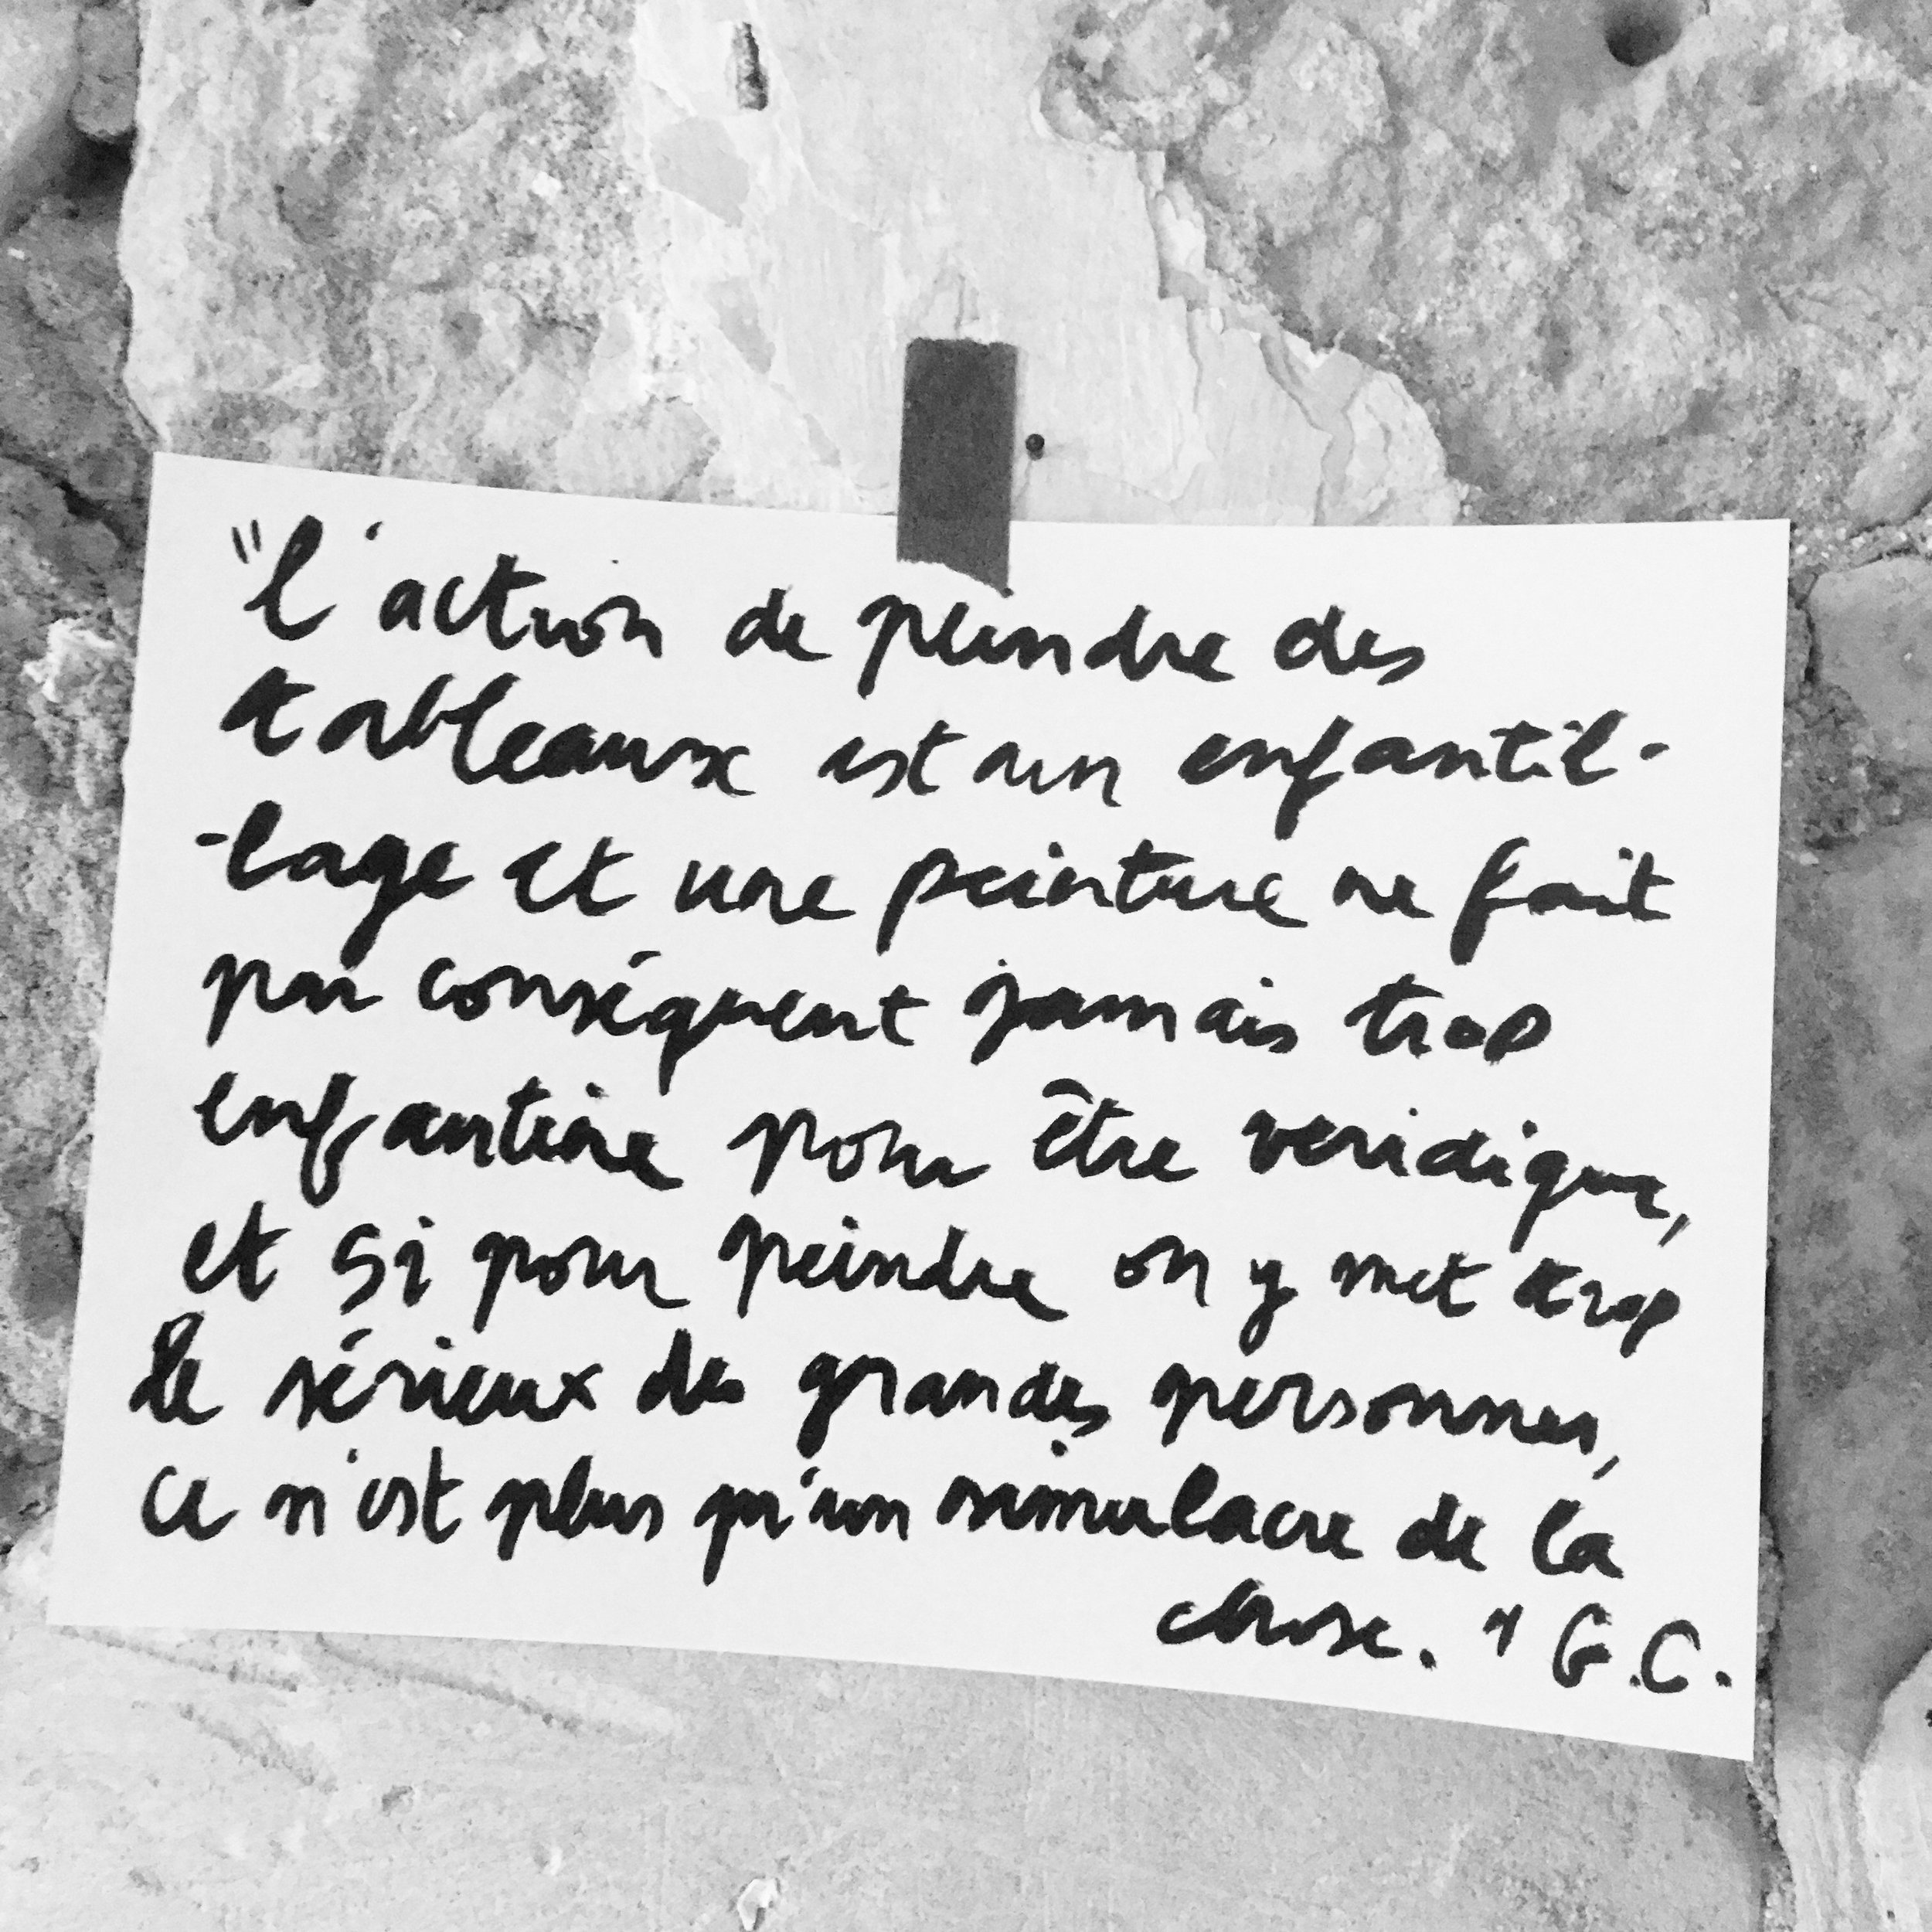 "l'action de peindre des
tableaux est un enfantil-
-lage et une peinture ne fait
par conséquent jamais trop
enfantine pour être veridique,
et si pour peindre on y met trop
le sérieux des grandes personnes,
ce n'est plus qu'un simulacre de la
chose." G.C.